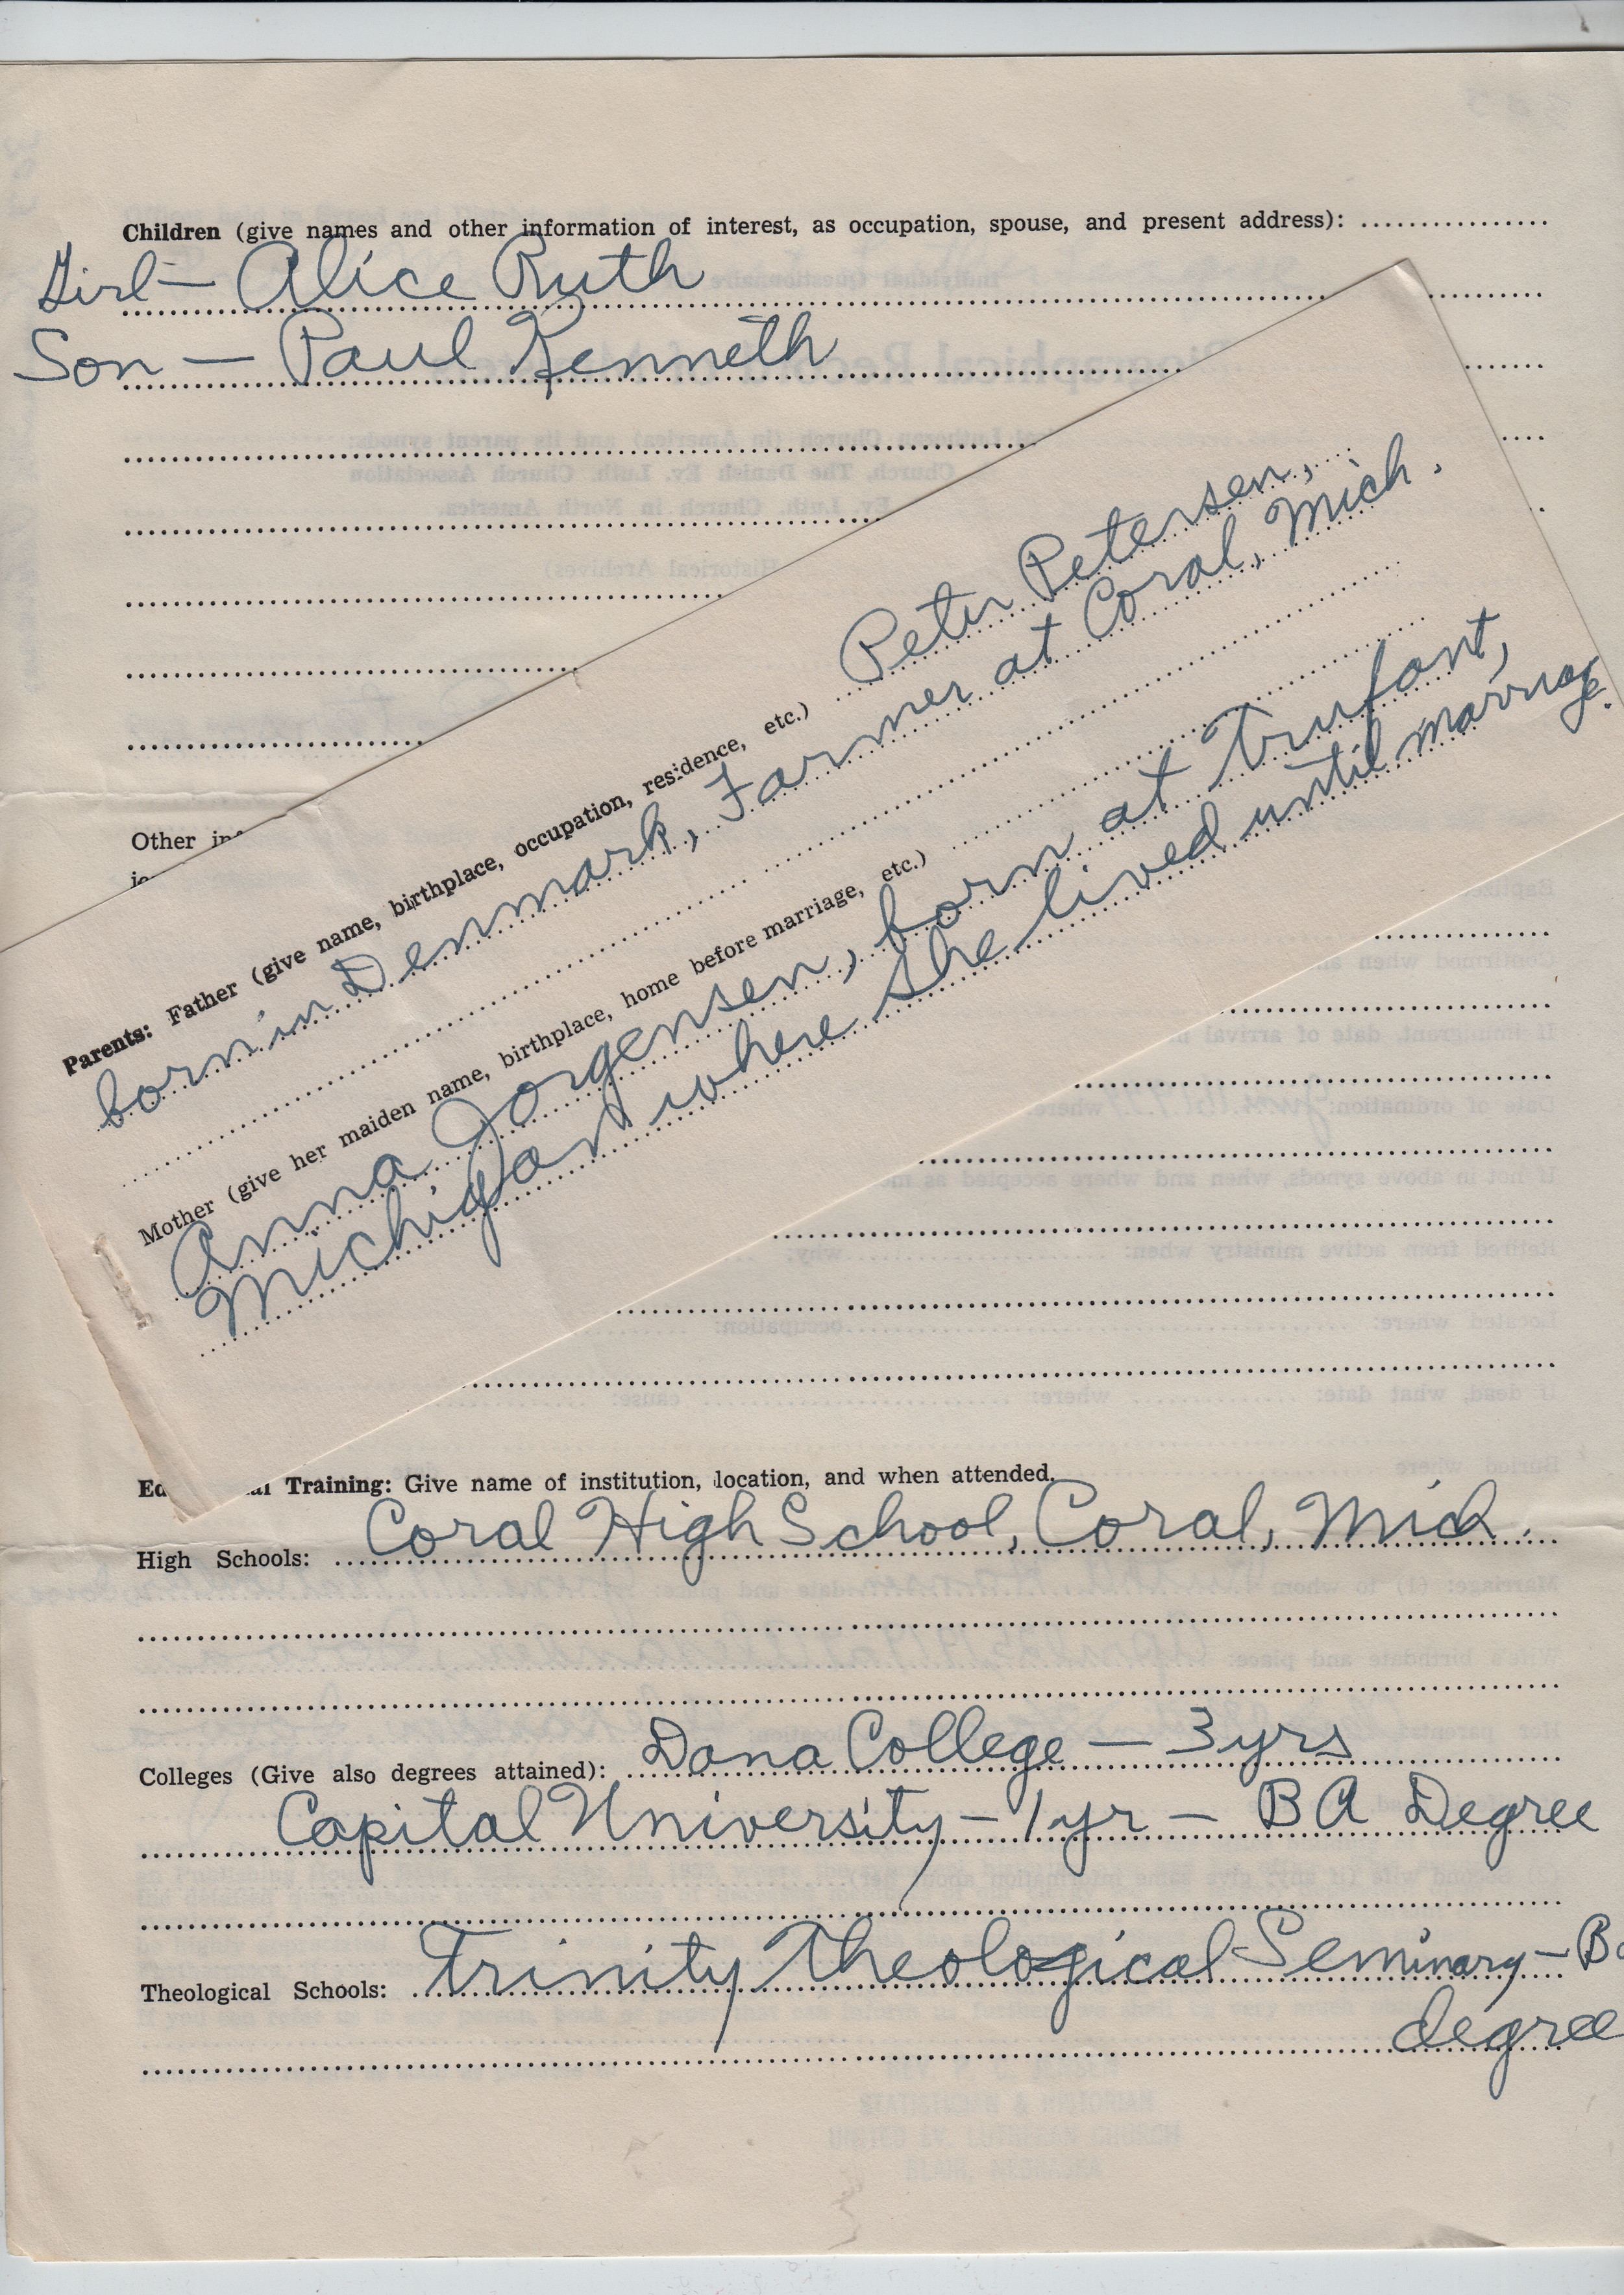 Children (give names and other information of interest, as occupation, spouse, and present address):
Girl — Alice Ruth
Son — Paul Kenneth
Other
Parents: Father (give name, birthplace, occupation, residence, etc.) Peter Petersen,
born in Denmark, Farmer at Coral, Mich.
Mother (give her maiden name, birthplace, home before marriage, etc.)
Anna Jorgensen, born at Trufant,
Michigan where she lived until marriage.
Training: Give name of institution, location, and when attended.
High Schools: Coral High School, Coral, Mich.
Colleges (Give also degrees attained): Dana College — 3 yrs
Capital University — 1 yr — BA Degree
Theological Schools: Trinity Theological Seminary —
degree